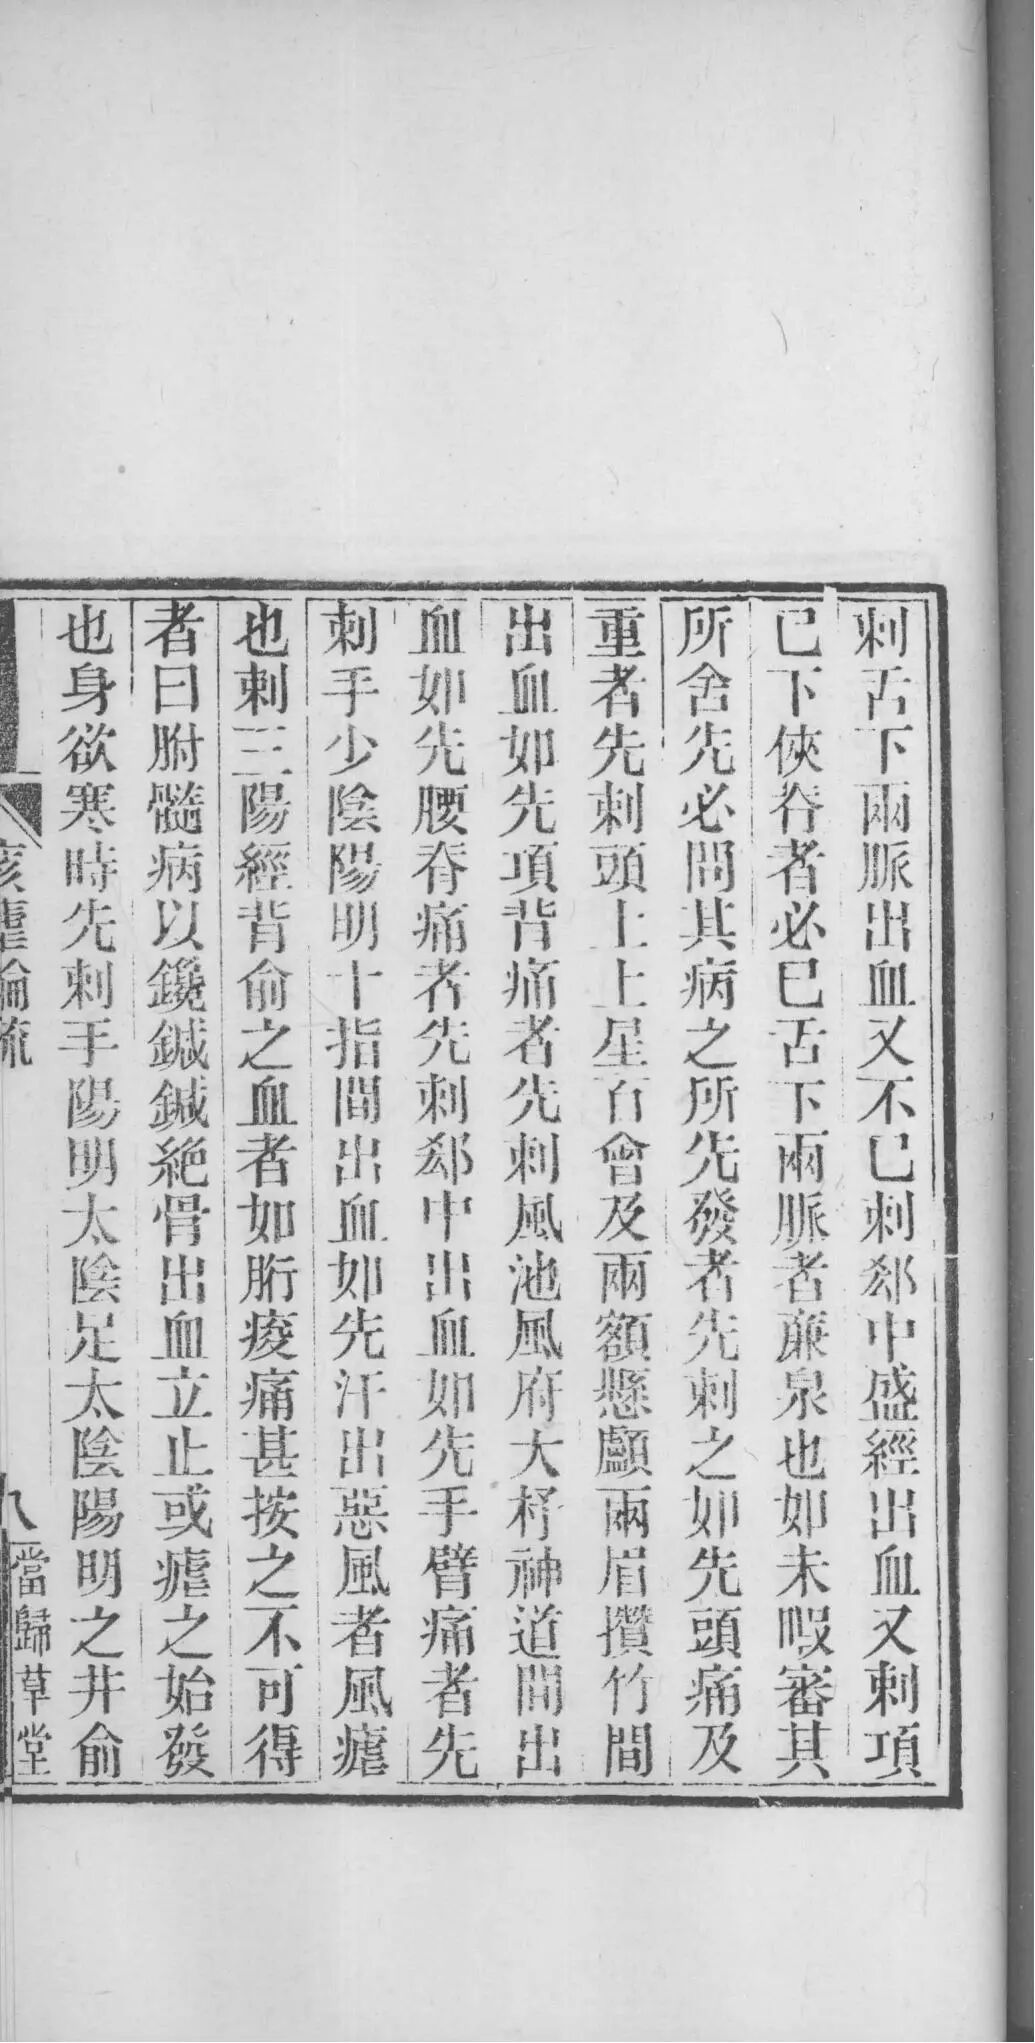 刺舌下兩脈出血又不已刺郄中盛經出血又刺項
已下俠脊者必已舌下兩脈者廉泉也如未暇審其
所舍先必問其病之所先發者先刺之如先頭痛及
重者先刺頭上上星百會及兩額懸顱兩眉攢竹間
出血如先項背痛者先刺風池風府大杼神道間出
血如先腰脊痛者先刺郄中出血如先手臂痛者先
刺手少陰陽明十指間出血如先汗出惡風者風瘧
也刺三陽經背俞之血者如胻痠痛甚按之不可得
者曰胕髓病以鑱鍼鍼絶骨出血立止或瘧之始發
也身欲寒時先刺手陽明太陰足太陰陽明之井俞
痎瘧論疏
八
當歸草堂